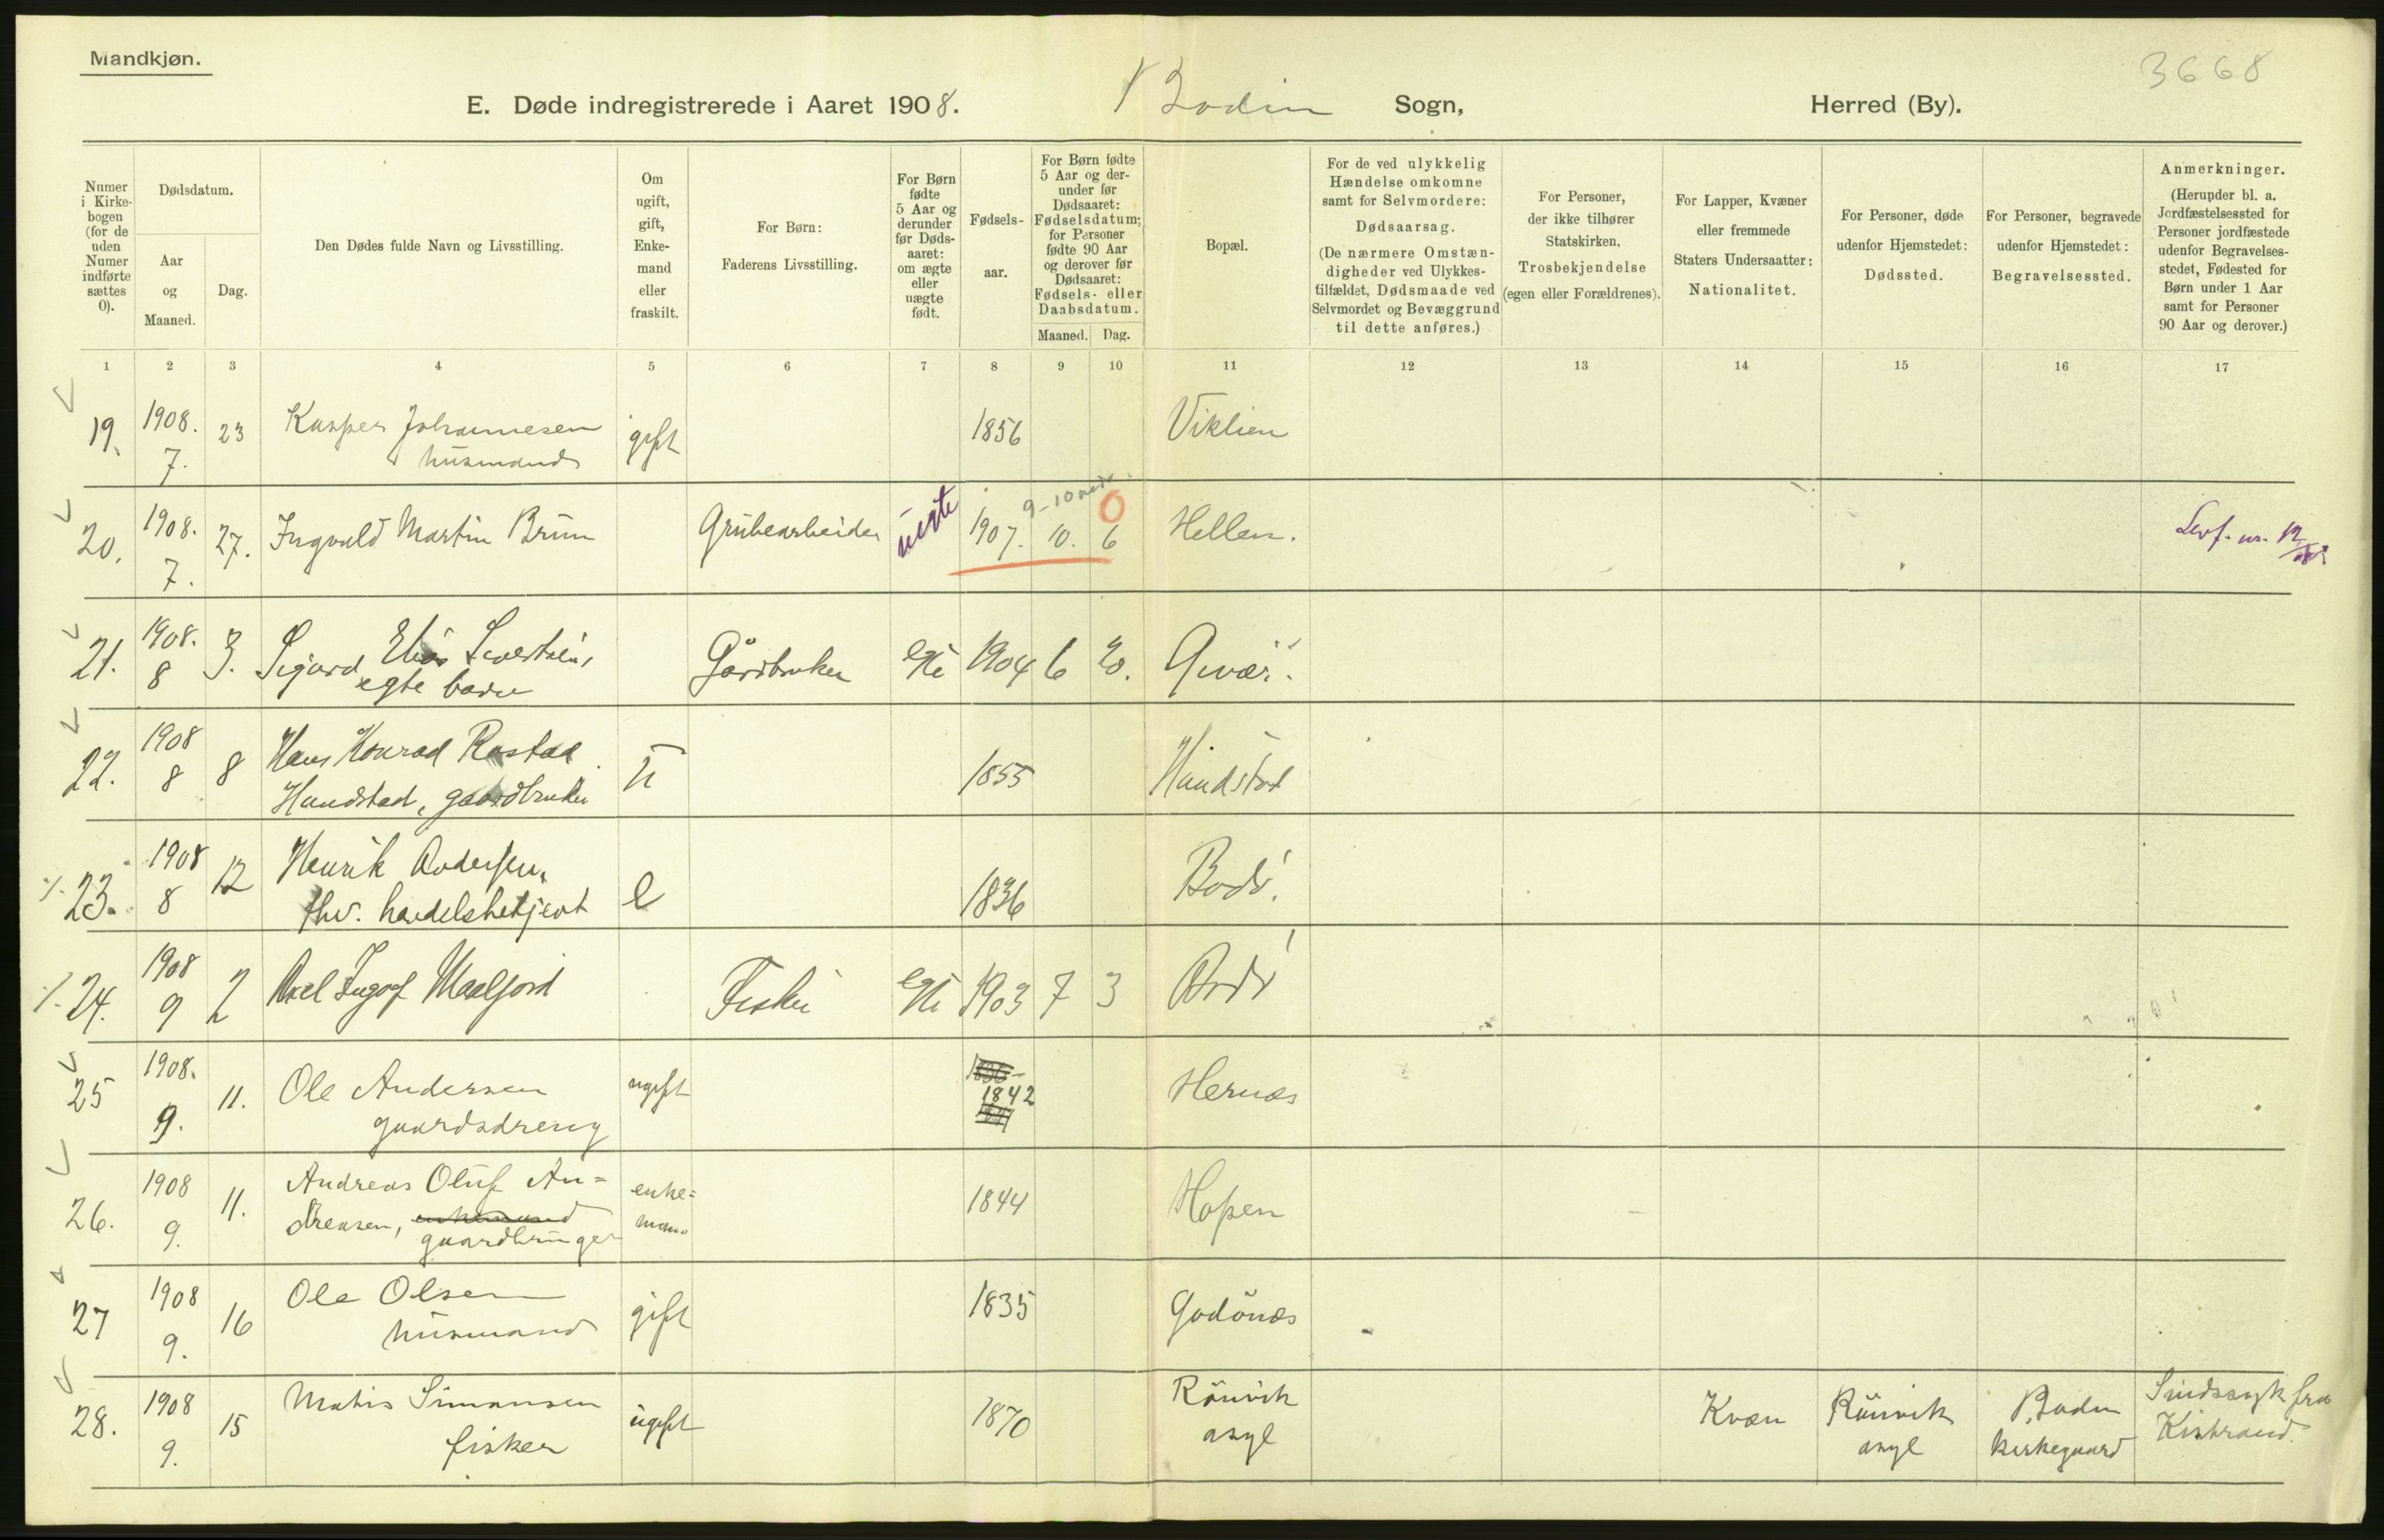 Mandkjøn.
3668
E. Døde indregistrerede i Aaret 1908.
Bodin Sogn,
Herred (By).
Numer i Kirkebogen (for de uden Numer indførte sættes 0).
Dødsdatum.
Aar og Maaned.
Dag.
Den Dødes fulde Navn og Livsstilling.
Om ugift, gift, Enkemand eller fraskilt.
For Børn:
Faderens Livsstilling.
For Børn fødte 5 Aar og derunder før Dødsaaret: om ægte eller uægte født.
Fødselsaar.
For Børn fødte 5 Aar og derunder før Dødsaaret: Fødselsdatum; for Personer fødte 90 Aar og derover før Dødsaaret: Fødsels- eller Daabsdatum.
Maaned. Dag.
Bopæl.
For de ved ulykkelig Hændelse omkomne samt for Selvmordere:
Dødsaarsag.
(De nærmere Omstændigheder ved Ulykkestilfældet, Dødsmaade ved Selvmordet og Bevæggrund til dette anføres.)
For Personer, der ikke tilhører Statskirken,
Trosbekjendelse
(egen eller Forældrenes).
For Lapper, Kvæner eller fremmede Staters Undersaatter:
Nationalitet.
For Personer, døde udenfor Hjemstedet:
Dødssted.
For Personer, begravede udenfor Hjemstedet:
Begravelsessted.
Anmerkninger.
(Herunder bl. a. Jordfæstelsessted for Personer jordfæstede udenfor Begravelsesstedet, Fødested for Børn under 1 Aar samt for Personer 90 Aar og derover.)
1 2 3 4 5 6 7 8 9 10 11 12 13 14 15 16 17
19. 1908. 7. 23 Kasper Johannesen husmand gift 1856 Viklien
20. 1908. 7. 27. Ingvald Martin Brun Grubearbeider uegte 1907. 10. 6 9-10 0 Hellen.
21. 1908. 8 3. Sigurd Elias Sivertsen, egte barn Gårdbruker egte 1904 6 20. Givær.
22. 1908 8 8 Hans Konrad Rastad Hundstad, gaardbruker u 1855 Hundstad
23. 1908 8 12 Henrik Andersen, fhv. handelsbetjent e 1836 Bodø.
24. 1908 9 2 Axel Ingolf Maalfjord Fisker egte 1903 7 3 Bodø
25 1908. 9. 11. Ole Andersen gaardsdreng ugift 1842 Hernæs
26. 1908 9. 11. Andreas Oluf Andreasen, enkemand gaardbruger enkemand 1844 Hopen
27 1908 9. 16 Ole Olsen husmand gift 1835 Godönæs
28. 1908 9. 15 Mathis Simonsen fisker ugift 1870 Rönvik asyl Kvæn Rönvik asyl Bodin kirkegaard Sindssyk fra Kistrand.